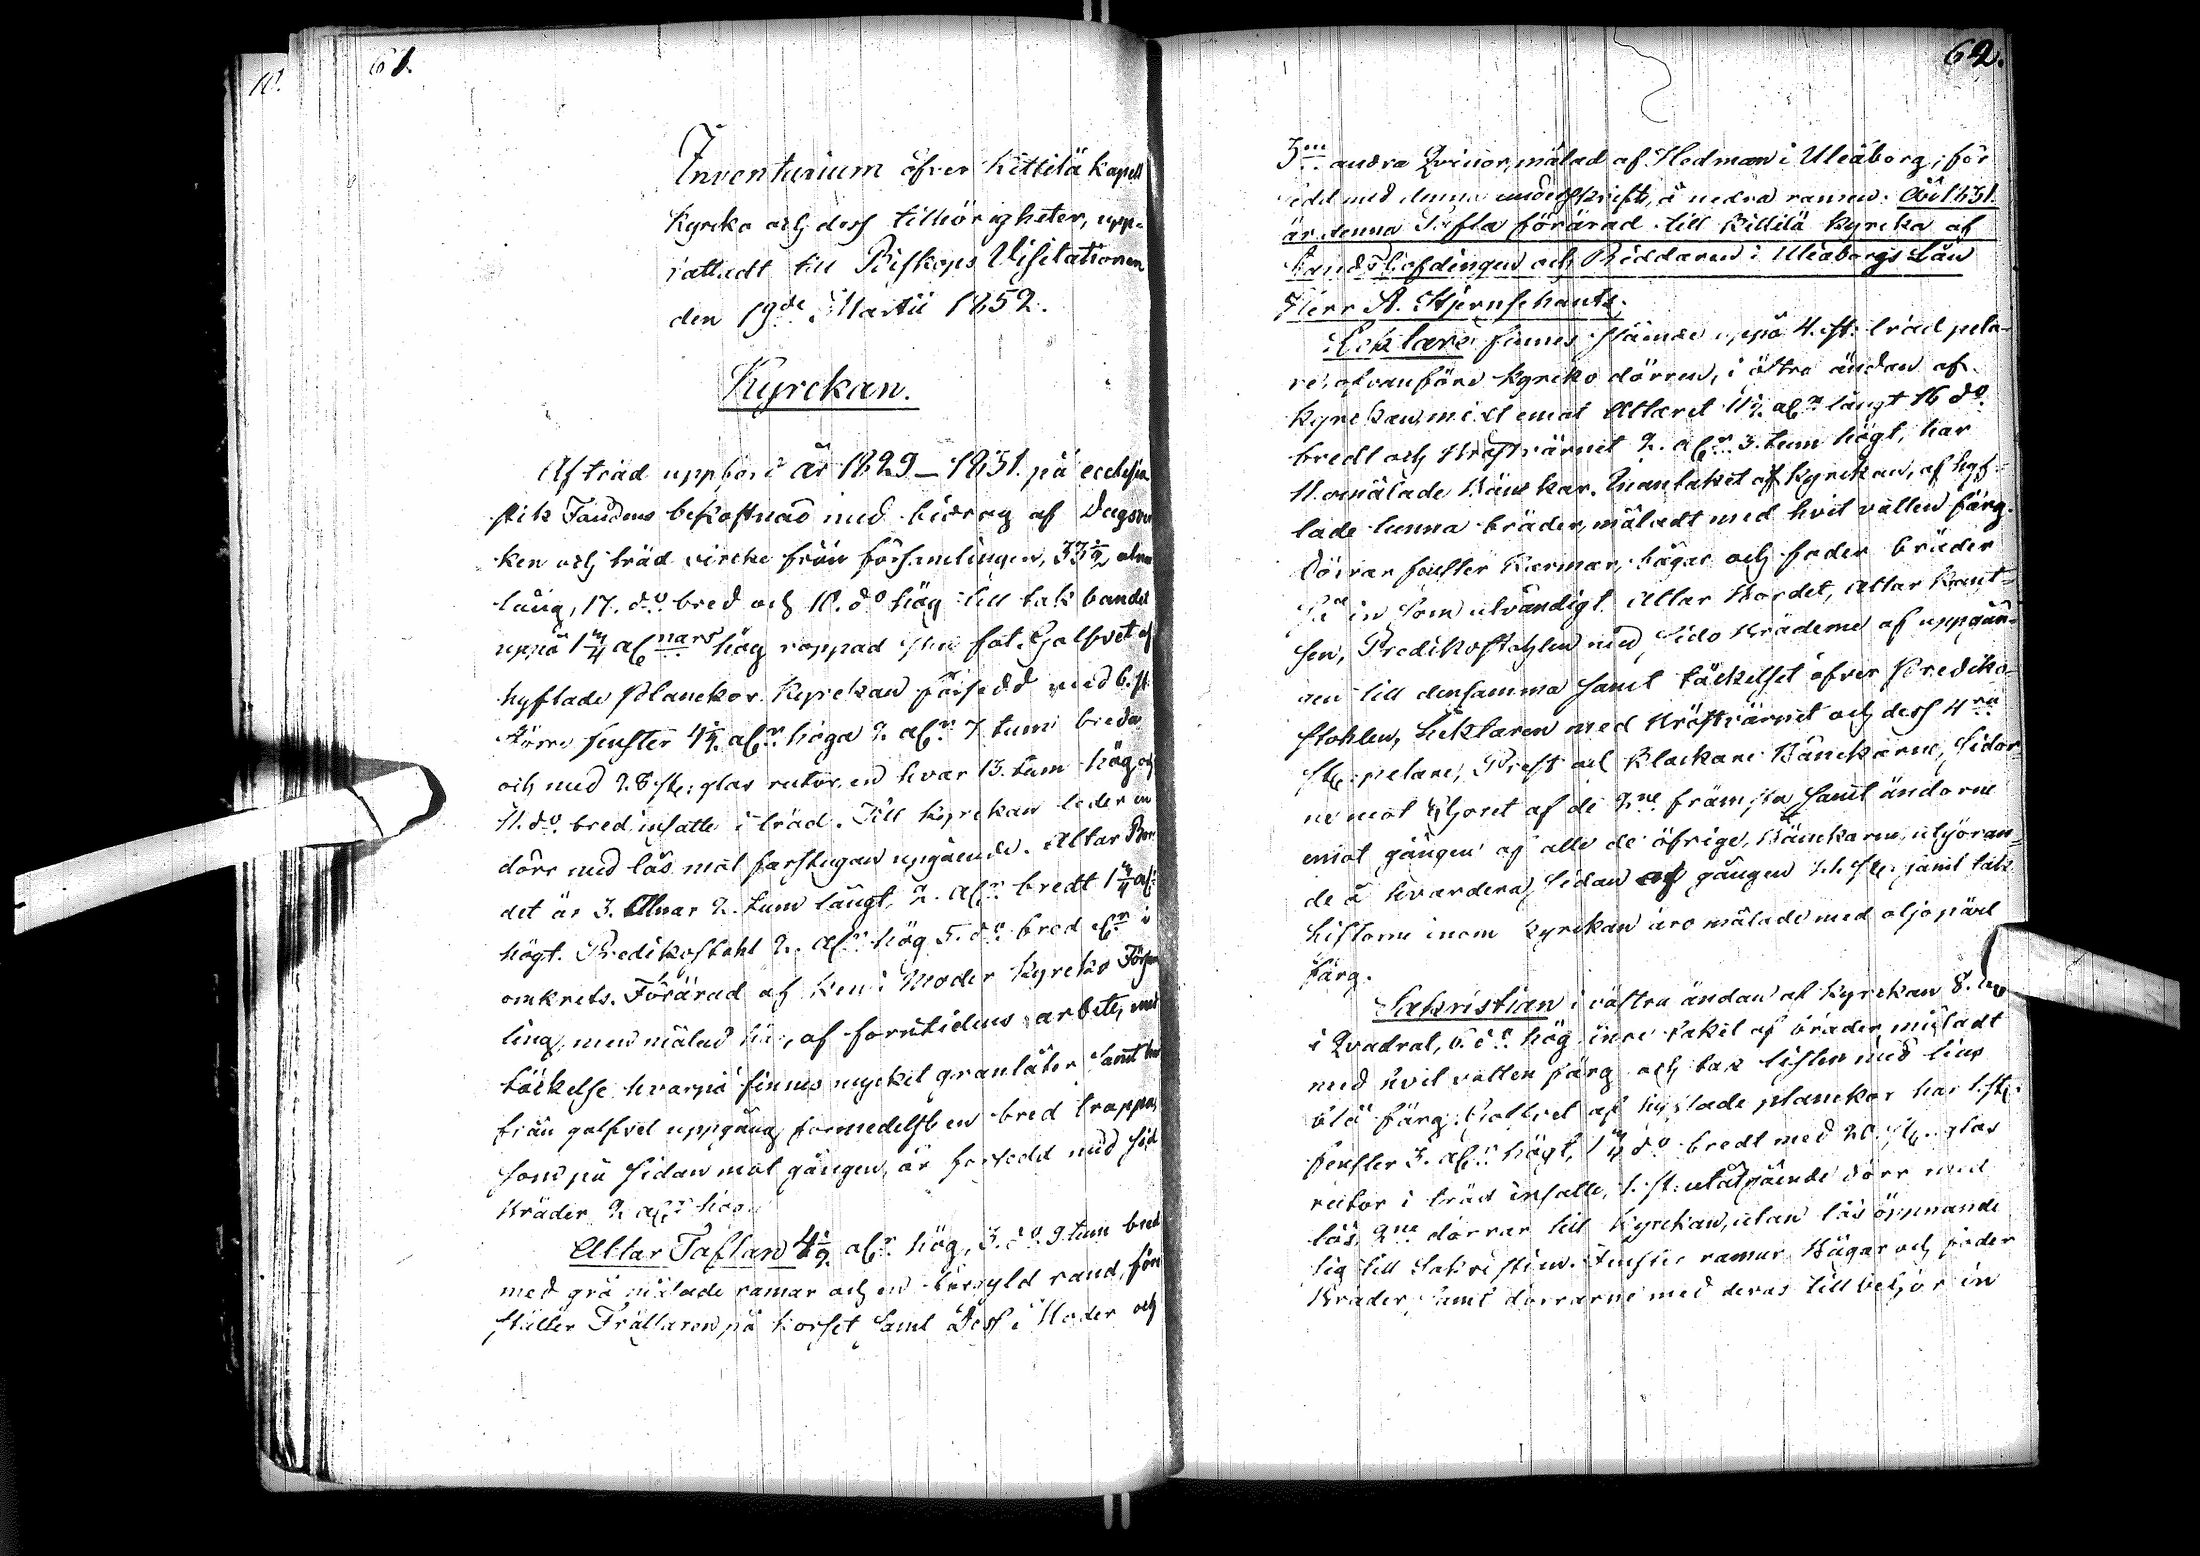 61.
Inventarium öfver Kittilä kapell
Kyrcka och dess tillhörigheter, upp-
rättadt till Biskops Visitationen
den 19de Martii 1852.
Kyrckan.
Af träd uppförd år 1829–1831. på ecclesia
stik Fondens bekostnad med bidrag af Dagsver
ken och träd virche från församlingen, 33½ alnar
lång, 17. do bred och 10. do hög till tak bandet
uppå 1¼ alnars hög rappad sten fot. Golfvet af
hyflade Planckor. Kyrckan försedd med 6. st.
större fenster 4½ aln höga 2 aln 7 tum breda
och med 28 st. glas rutor, en hvar 13. tum hög och
11. do bred infatte i träd. Till Kyrckan leder en
dörr med lås mot farstugan upgående. Altar Bor-
det är 3. Alnar 2. tum långt, 2. aln bredt 1¼ aln
högt. Predikostohl 2. aln hög 5. do bred i
omkrets. Förärad af Kemi Moder Kyrcko Försam
ling, men målad här, af forntidens arbete, med
täckelse hvarpå finnes mycket granlåter samt har
från golfvet uppgång förmedelst en bred trappa,
som på sidan mot gången, är försedd med sid
bräder 2 aln höga.
Altar Taflan 4½ aln hög, 3. do 9. tum bred
med grå målade ramar och en förgyld rand, före
ställer Frälsaren på korset samt Dess Moder och
62.
3ne andra Qvinor, målad af Hedman i Uleåborg, för
sedd med denna underskrift, å nedra ramen: År 1831.
är denna Tafla förärad till Kittilä Kyrcka af
Landshöfdingen och Riddaren i Uleåborgs Län
Herr A. Stjernschantz.
Lecktare finnes stående uppå 4. st. träd pela-
re, ofvanföre Kyrcko dörren, i östra ändan af
Kyrckan, midt emot Altaret 11½ aln långt 16 do
bredt och Bröstvärnet 2. aln 3. tum högt, har
11. omålade Bänckar. Innantaket af Kyrckan, af hyf-
lade tunna bräder, måladt med hvit vatten färg.
Dörrar fenster Karmar, bågar och foder bräder
så in som utvändigt Altar Bordet, Altar Krant-
sen, Predikostohlen med sido bräderne af uppgån-
gen till densamma samt täckelset öfver Prediko-
stohlen, Lecktaren med Bröstvärnet och dess 4ra
st. pelare, Prest och Klockare Bänckarne, sidor-
ne mot Choret af de 2ne främsta samt ändorne
emot gången af alla de öfrige Bänckarne, utgöran-
de å hvardera sidan af gången 11. st. jämt tak
listorne inom Kyrckan äro målade med oljo pärl
färg.
Sakristian i västra ändan af Kyrckan 8. aln
i Qvadrat, 6. do hög inre taket af bräder, måladt
med hvit vatten färg och tak listen med ljus
blå färg. Golfvet af hyflade planckor har 1. st.
fenster 3. aln högt, 1¼ do bredt med 20. st. glas
rutor i träd infatte, 1. st. utåtgående dörr med
lås, 2ne dörrar till Kyrckan, utan lås öppnande
sig till Sakristian. Fenster ramar Bågar och foder
Bräder samt dörrarne med deras tillbehör in